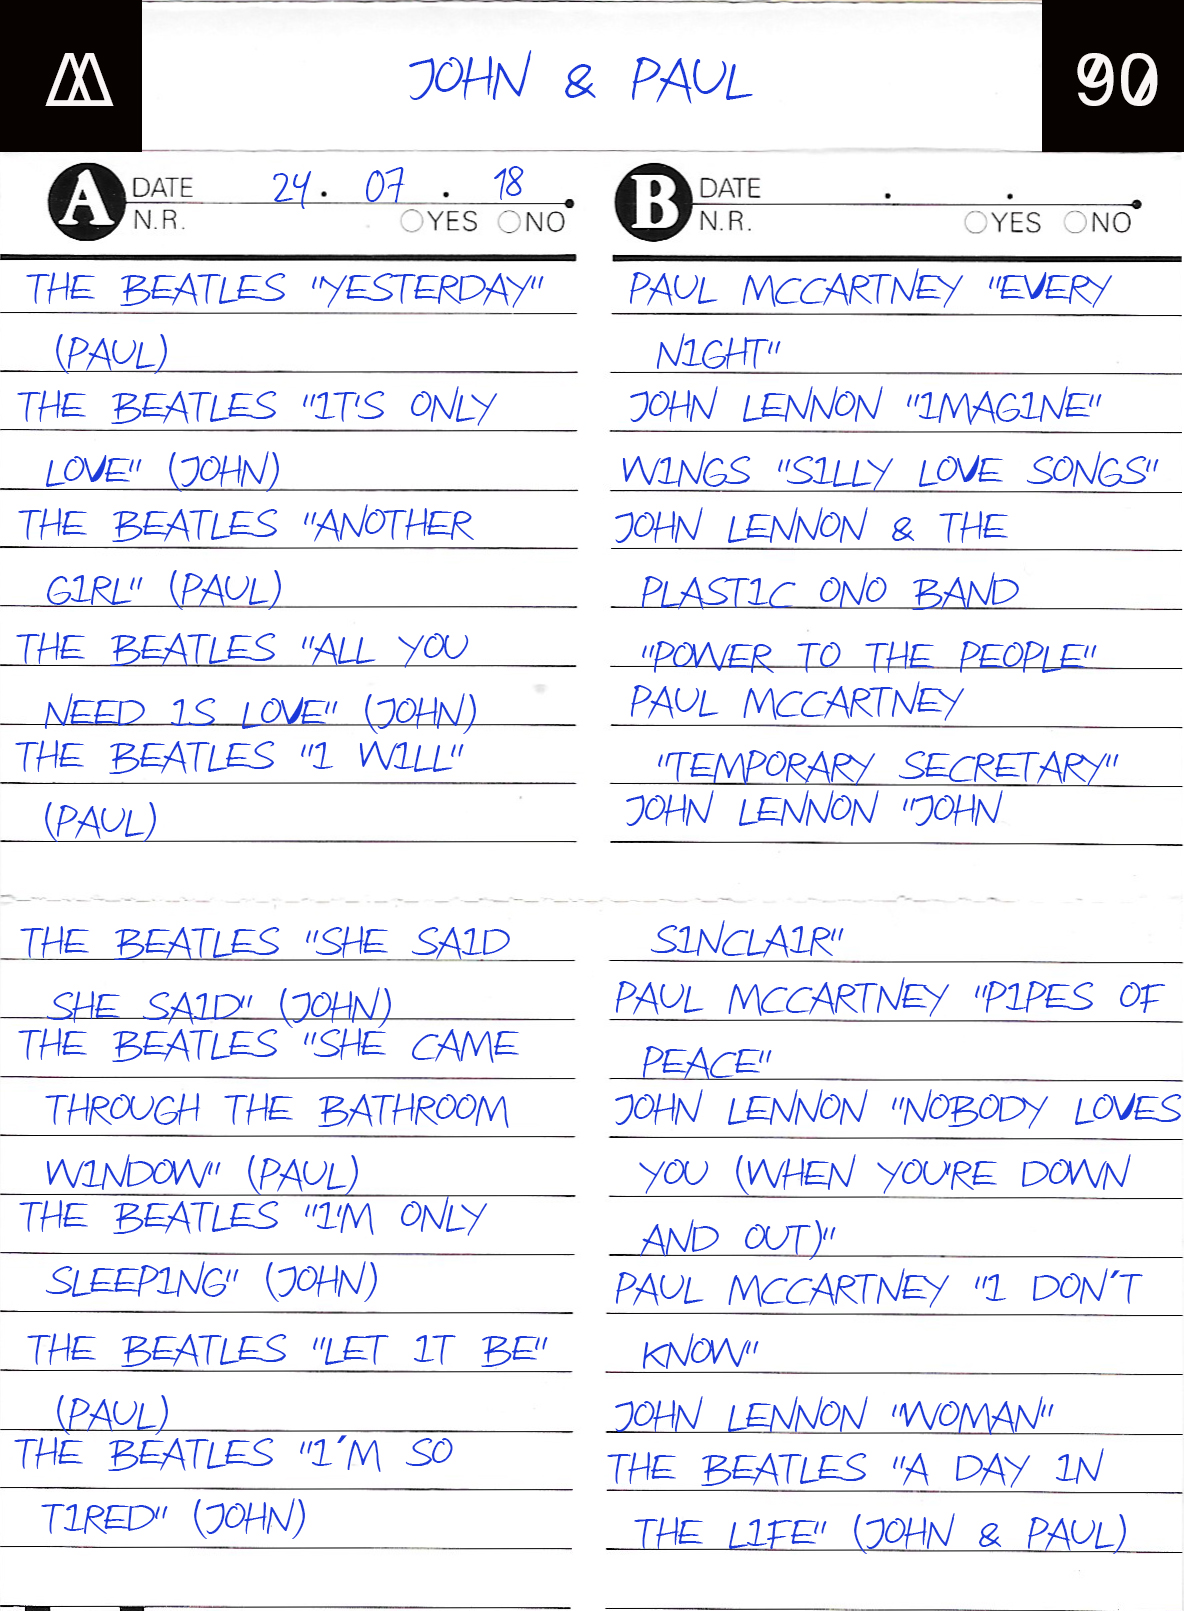 JOHN & PAUL
90
A DATE 24. 07. 18
N.R. YES NO
THE BEATLES "YESTERDAY"
(PAUL)
THE BEATLES "IT'S ONLY
LOVE" (JOHN)
THE BEATLES "ANOTHER
GIRL" (PAUL)
THE BEATLES "ALL YOU
NEED IS LOVE" (JOHN)
THE BEATLES "I WILL"
(PAUL)
THE BEATLES "SHE SAID
SHE SAID" (JOHN)
THE BEATLES "SHE CAME
THROUGH THE BATHROOM
WINDOW" (PAUL)
THE BEATLES "I'M ONLY
SLEEPING" (JOHN)
THE BEATLES "LET IT BE"
(PAUL)
THE BEATLES "I´M SO
TIRED" (JOHN)
B DATE . .
N.R. YES NO
PAUL MCCARTNEY "EVERY
NIGHT"
JOHN LENNON "IMAGINE"
WINGS "SILLY LOVE SONGS"
JOHN LENNON & THE
PLASTIC ONO BAND
"POWER TO THE PEOPLE"
PAUL MCCARTNEY
"TEMPORARY SECRETARY"
JOHN LENNON "JOHN
SINCLAIR"
PAUL MCCARTNEY "PIPES OF
PEACE"
JOHN LENNON "NOBODY LOVES
YOU (WHEN YOU'RE DOWN
AND OUT)"
PAUL MCCARTNEY "I DON´T
KNOW"
JOHN LENNON "WOMAN"
THE BEATLES "A DAY IN
THE LIFE" (JOHN & PAUL)